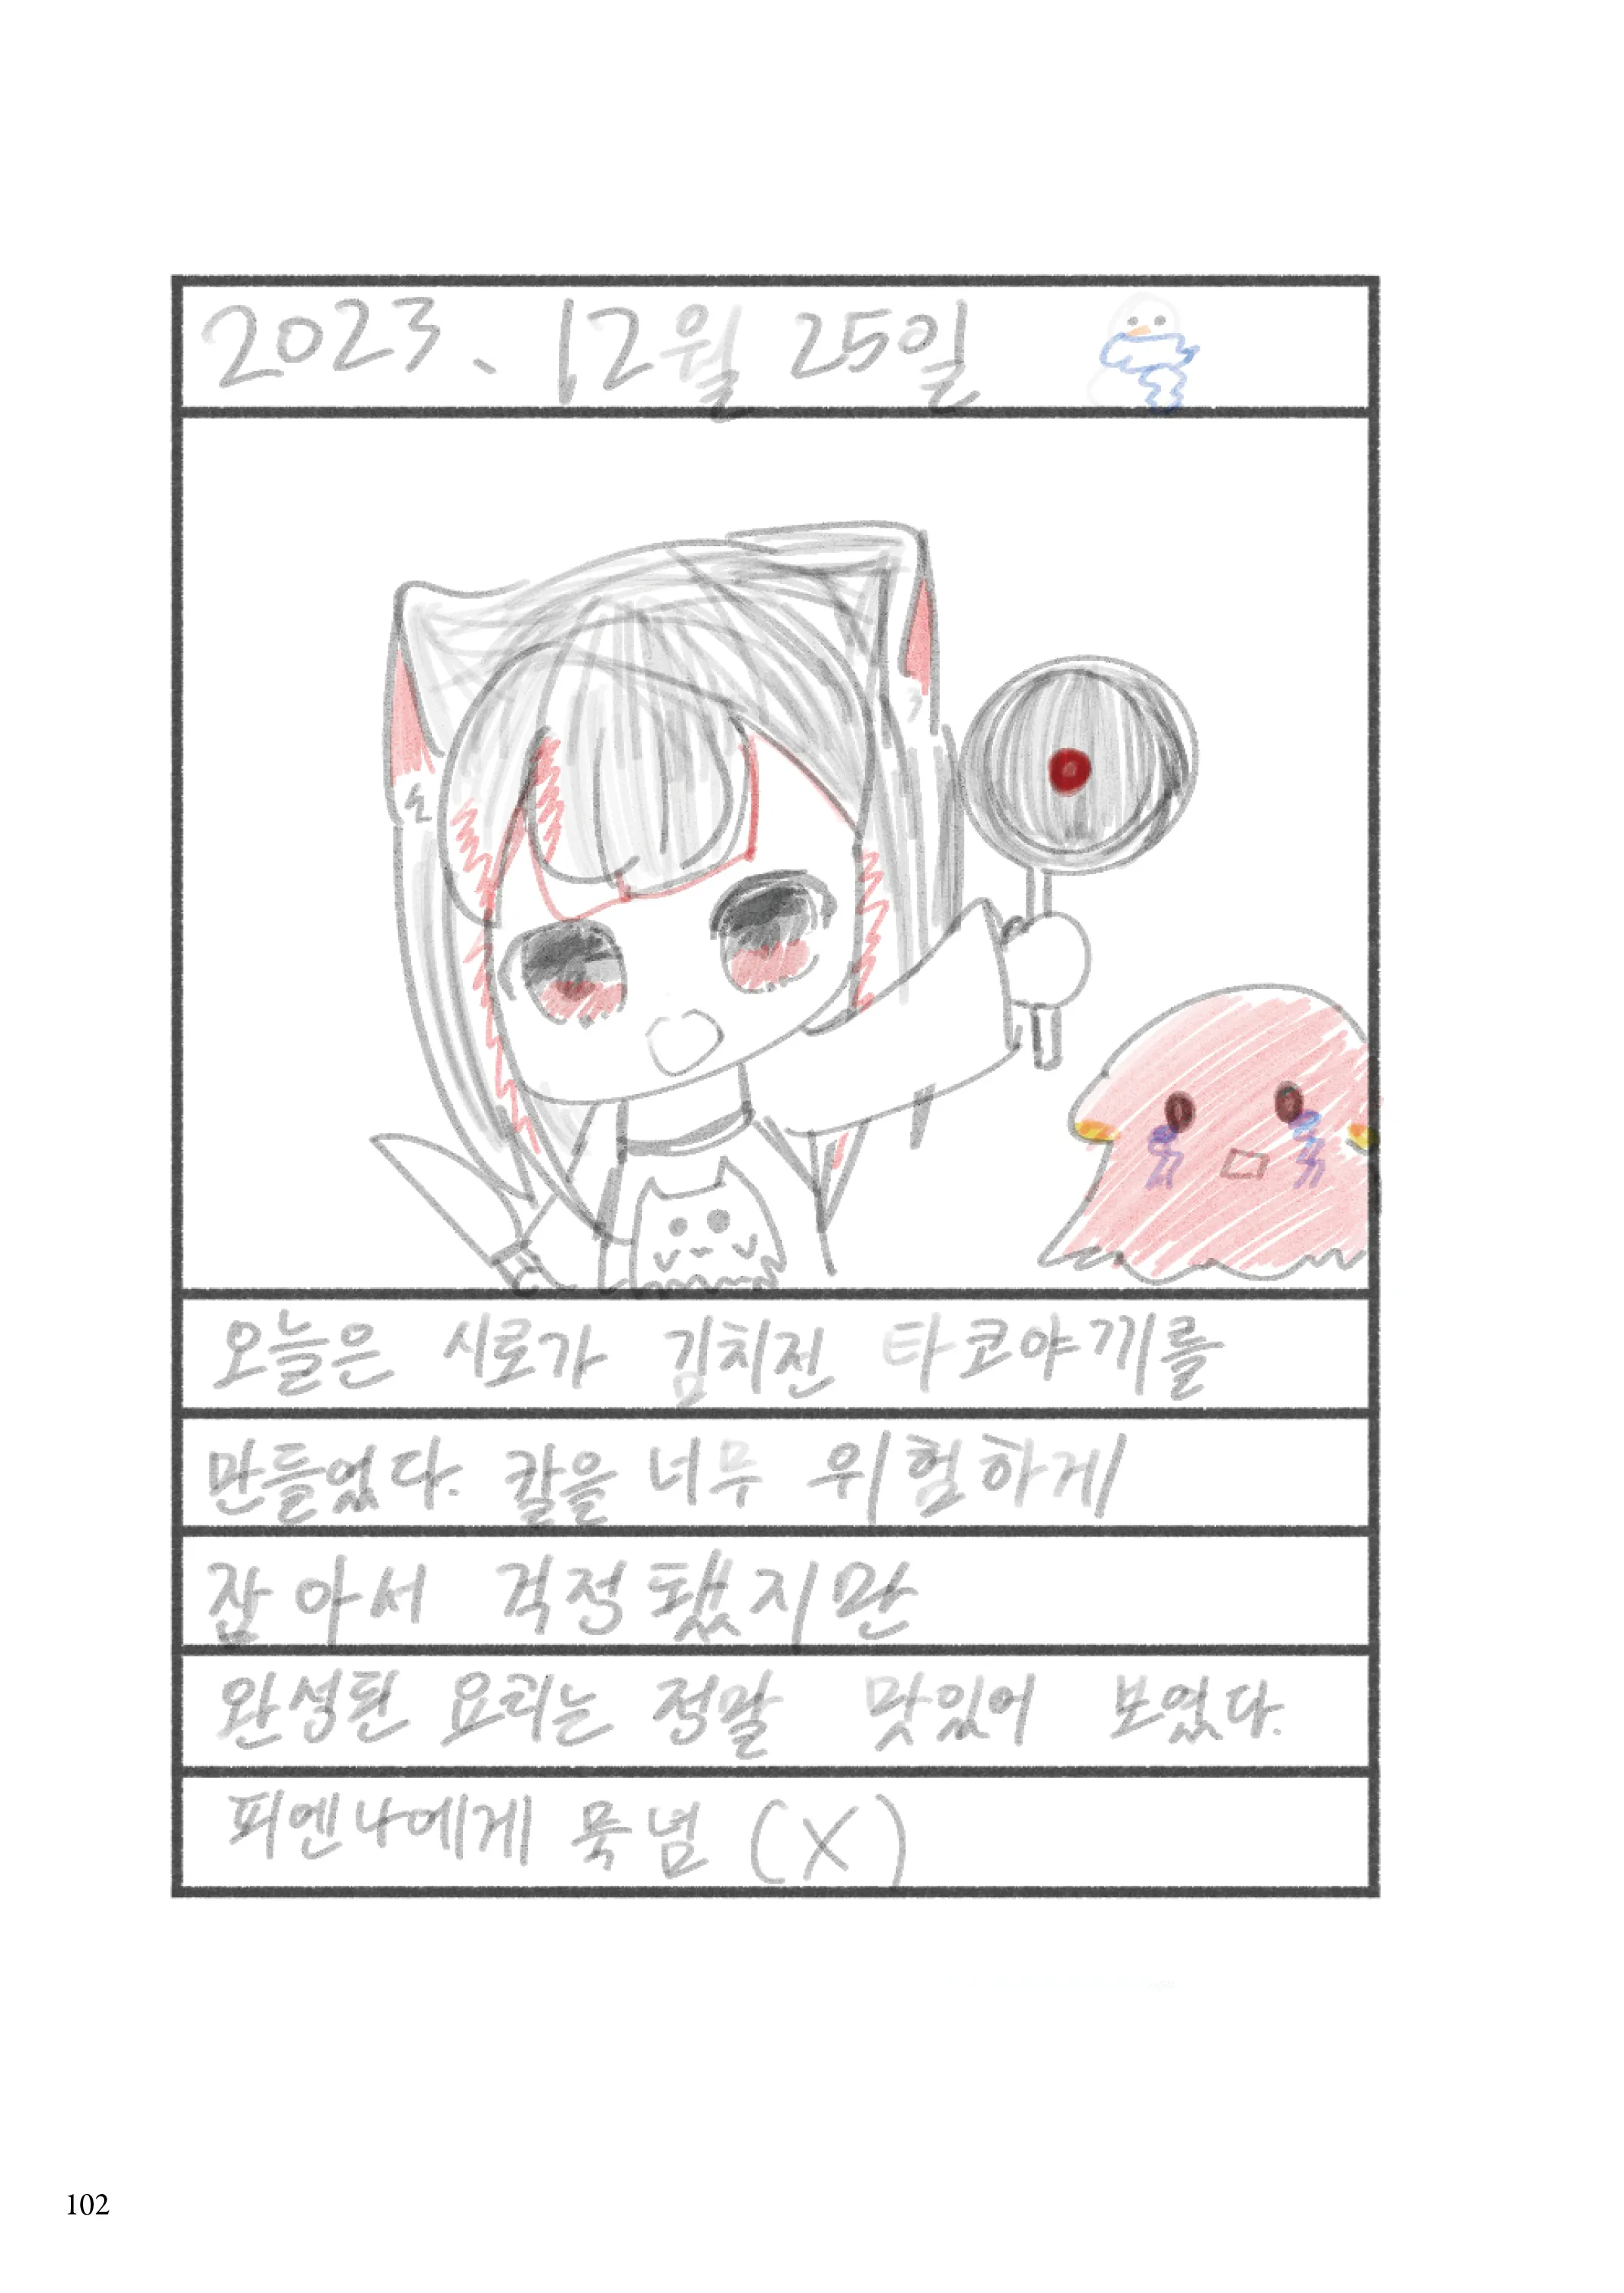 2023. 12월 25일
오늘은 시로가 김치전 타코야끼를
만들었다. 칼을 너무 위험하게
잡아서 걱정됐지만
완성된 요리는 정말 맛있어 보였다.
피엔나에게 묵념 (X)
102